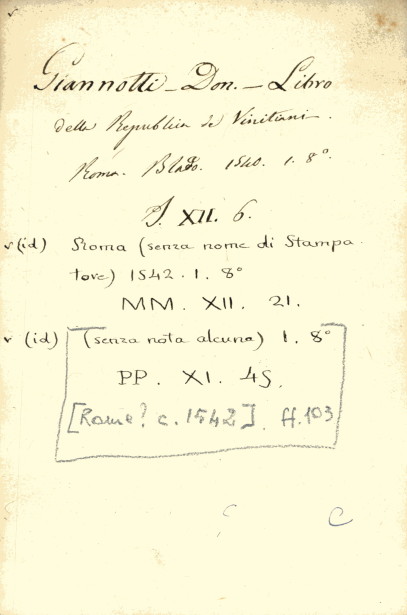 Giannotti - Don. - Libro
della Republica de Vinitiani.
Roma. Blado. 1540. 1. 8°.
J. XII. 6.
v (id) Roma (senza nome di Stampa
tore) 1542. 1. 8°
MM. XII. 21.
v (id) (senza nota alcuna) 1. 8°
PP. XI. 45.
[Rome? c. 1542]. ff. 103
C